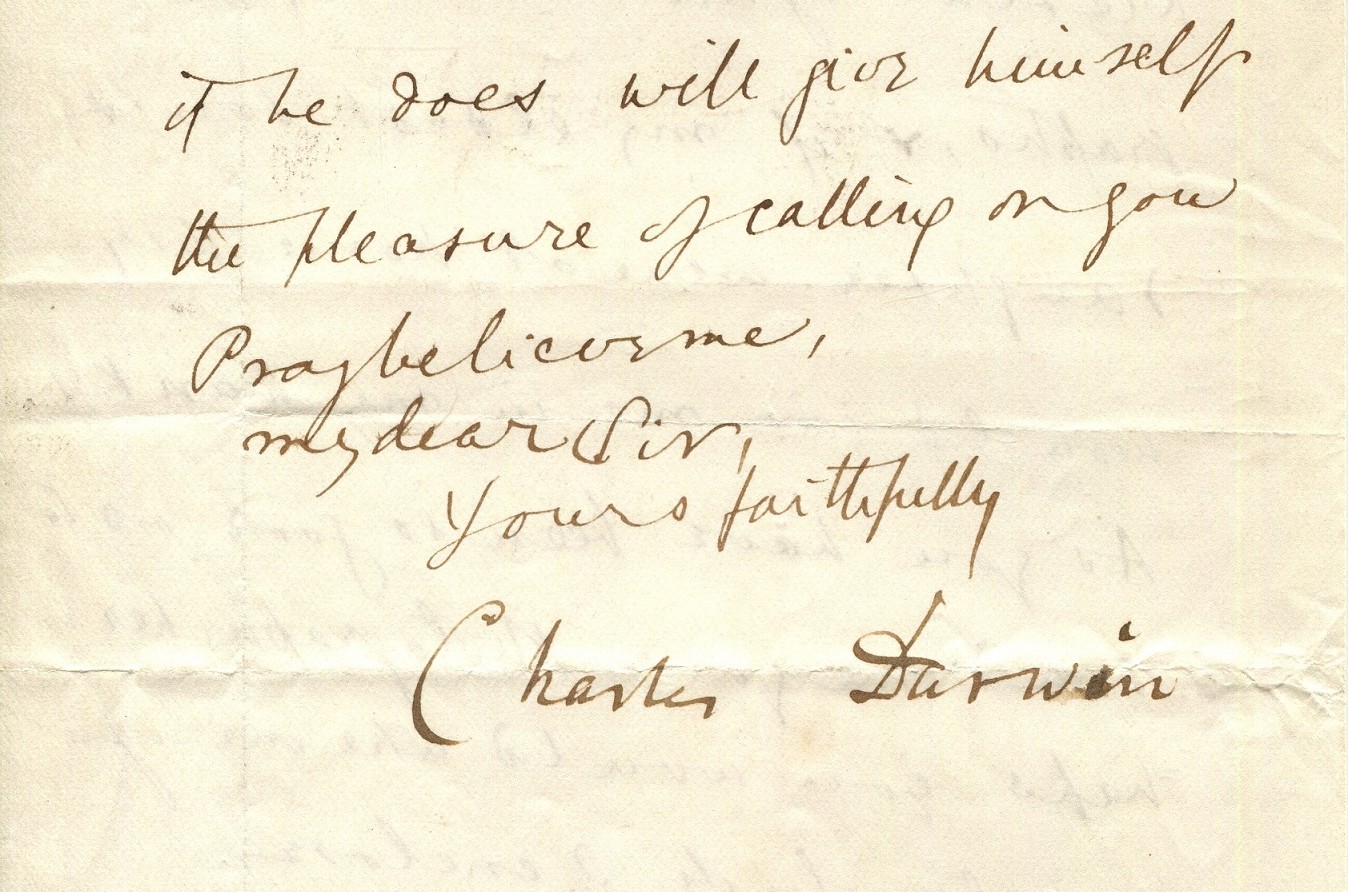 if he does will give himself
the pleasure of calling on you
Pray believe me,
my dear Sir,
Yours faithfully
Charles Darwin